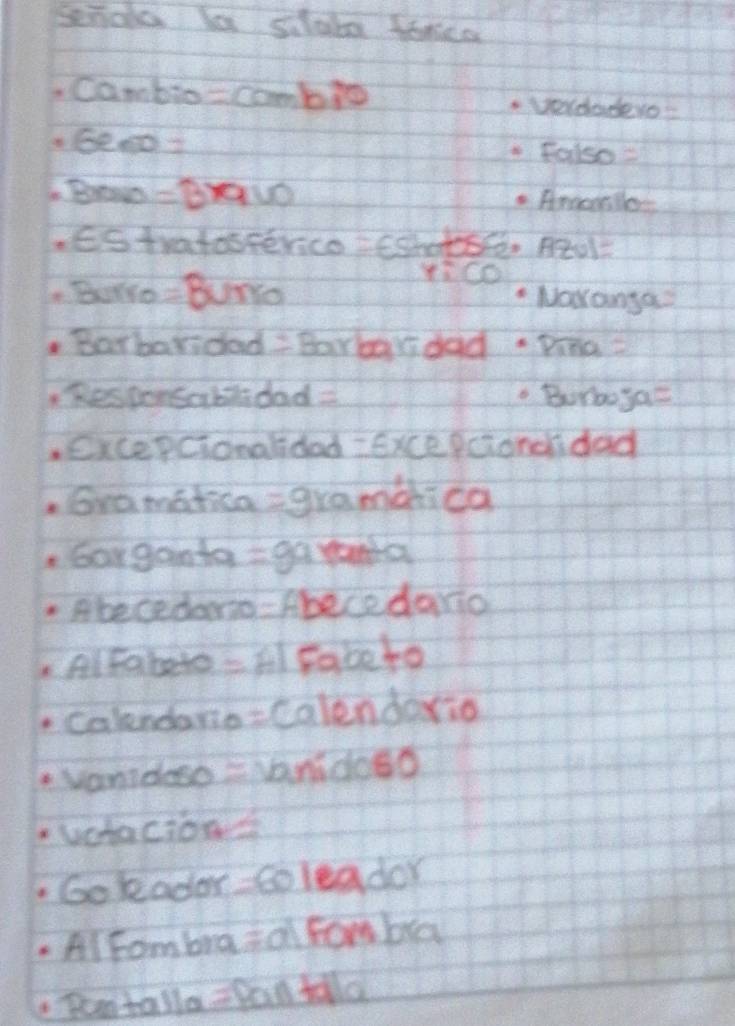 Señala la sílaba tónica
• Cambio = cambio
• Bravo = Bravo
• Estratosférico = Estratosfé
rico
• Burro = Burro
• Barbaridad = Barbaridad
• Responsabilidad =
• Excepcionalidad = Excepcionalidad
• Gramática = gramática
• Garganta =
• Abecedario = Abecedario
• AlFabeto = AlFabeto
• Calendario = Calendario
• Vanidoso = Vanidoso
• Votación =
• Goleador = Goleador
• AlFombra = alFombra
• Pantalla = Pantalla
• Verdadero =
• Falso =
• Amarillo =
• Azul =
• Naranja =
• Piña =
• Burbuja =